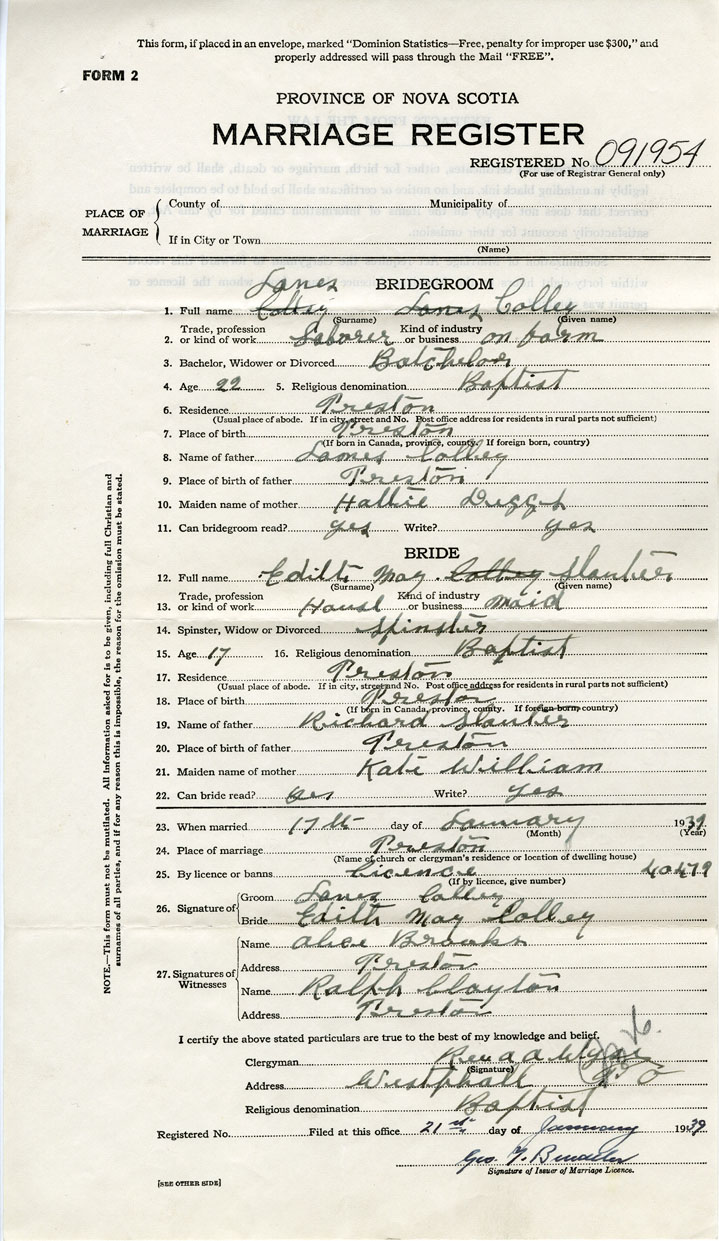 This form, if placed in an envelope, marked "Dominion Statistics—Free, penalty for improper use $300," and
properly addressed will pass through the Mail "FREE".
FORM 2
PROVINCE OF NOVA SCOTIA
MARRIAGE REGISTER
REGISTERED No. 091954
(For use of Registrar General only)
PLACE OF MARRIAGE
County of Municipality of
If in City or Town
(Name)
BRIDEGROOM
James
1. Full name Colley James Colley
(Surname) (Given name)
2. Trade, profession or kind of work Laborer Kind of industry or business on farm
3. Bachelor, Widower or Divorced Batchelor
4. Age 22 5. Religious denomination Baptist
6. Residence Preston
(Usual place of abode. If in city, street and No. Post office address for residents in rural parts not sufficient)
7. Place of birth Preston
(If born in Canada, province, county. If foreign born, country)
8. Name of father James Colley
9. Place of birth of father Preston
10. Maiden name of mother Hattie
11. Can bridegroom read? yes Write? yes
BRIDE
12. Full name Edith May Colley Slauter
(Surname) (Given name)
13. Trade, profession or kind of work House Kind of industry or business maid
14. Spinster, Widow or Divorced Spinster
15. Age 17 16. Religious denomination Baptist
17. Residence Preston
(Usual place of abode. If in city, street and No. Post office address for residents in rural parts not sufficient)
18. Place of birth Preston
(If born in Canada, province, county. If foreign born, country)
19. Name of father Richard Slauter
20. Place of birth of father Preston
21. Maiden name of mother Kate William
22. Can bride read? yes Write? yes
23. When married 17th day of January 1939
(Month) (Year)
24. Place of marriage Preston
(Name of church or clergyman's residence or location of dwelling house)
25. By licence or banns Licence 40479
(If by licence, give number)
26. Signature of
Groom James Colley
Bride Edith May Colley
27. Signatures of Witnesses
Name Alice Brooks
Address Preston
Name Ralph Clayton
Address Preston
I certify the above stated particulars are true to the best of my knowledge and belief.
Clergyman Rev
(Signature)
Address Westphall
Religious denomination Baptist
Registered No. Filed at this office 21st day of January 1939
Geo.
Signature of Issuer of Marriage Licence.
[SEE OTHER SIDE]
NOTE.—This form must not be mutilated. All information asked for is to be given, including full Christian and
surnames of all parties, and if for any reason this is impossible, the reason for the omission must be stated.